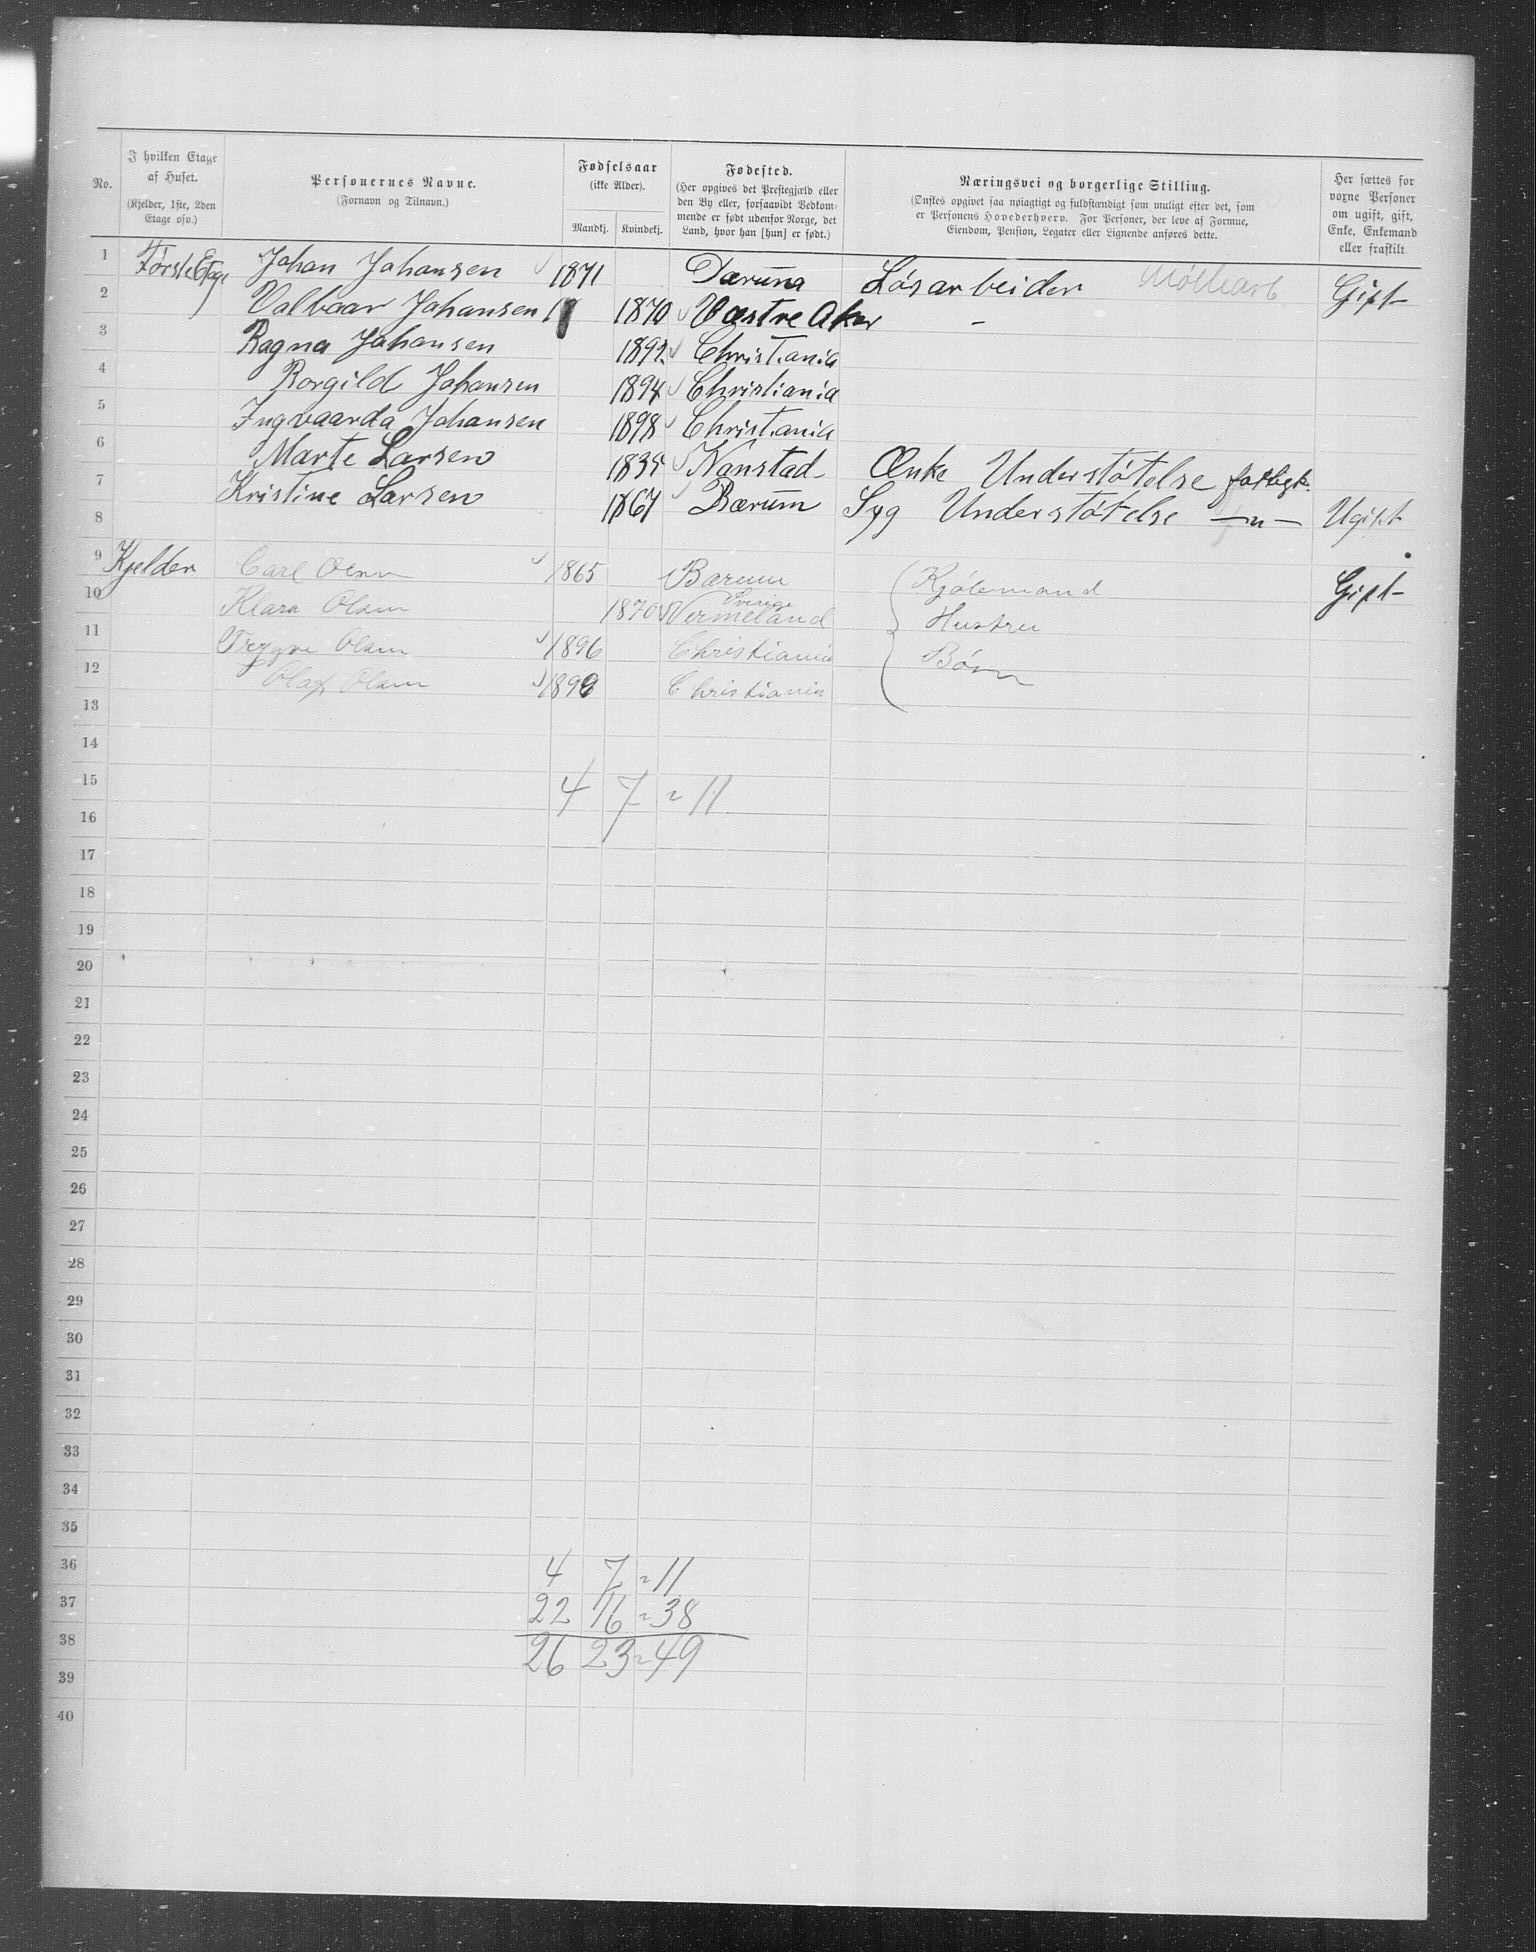 No.
I hvilken Etage af Huset. (Kjelder, 1ste, 2den Etage osv.)
Personernes Navne. (Fornavn og Tilnavn.)
Fødselsaar (ikke Alder).
Mandkj. Kvindekj.
Fødested. (Her opgives det Prestegjæld eller den By eller, forsaavidt Vedkommende er født udenfor Norge, det Land, hvor han [hun] er født.)
Næringsvei og borgerlige Stilling. (Ønskes opgivet saa nøiagtigt og fuldstændigt som muligt efter det, som er Personens Hovederhverv. For Personer, der leve af Formue, Eiendom, Pension, Legater eller Lignende anføres dette.
Her sættes for voxne Personer om ugift, gift, Enke, Enkemand eller fraskilt
1 Første Etage Johan Johansen 1871 Løsarbeider Gift
2 Valbaar Johansen 1870 Væstre Aker -
3 Ragna Johansen 1892 Christiania
4 Borgild Johansen 1894 Christiania
5 Ingvaarda Johansen 1898 Christiania
6 Marte Larsen 1835 Nanstad Ænke Understøtelse fattigk.
7 Kristine Larsen 1867 Bærum Syg Understøtelse —"— Ugift
8
9 Kjelder Carl Olsen 1865 Bærum Kjølemand Gift
10 Klara Olsen 1870 Vermeland Sverige Hustru
11 Trygve Olsen 1896 Christiania Børn
12 Olaf Olsen 1899 Christiania
13
14
15 4 7 = 11
16
17
18
19
20
21
22
23
24
25
26
27
28
29
30
31
32
33
34
35
36 4 7 = 11
37 22 16 = 38
38 26 23 = 49
39
40